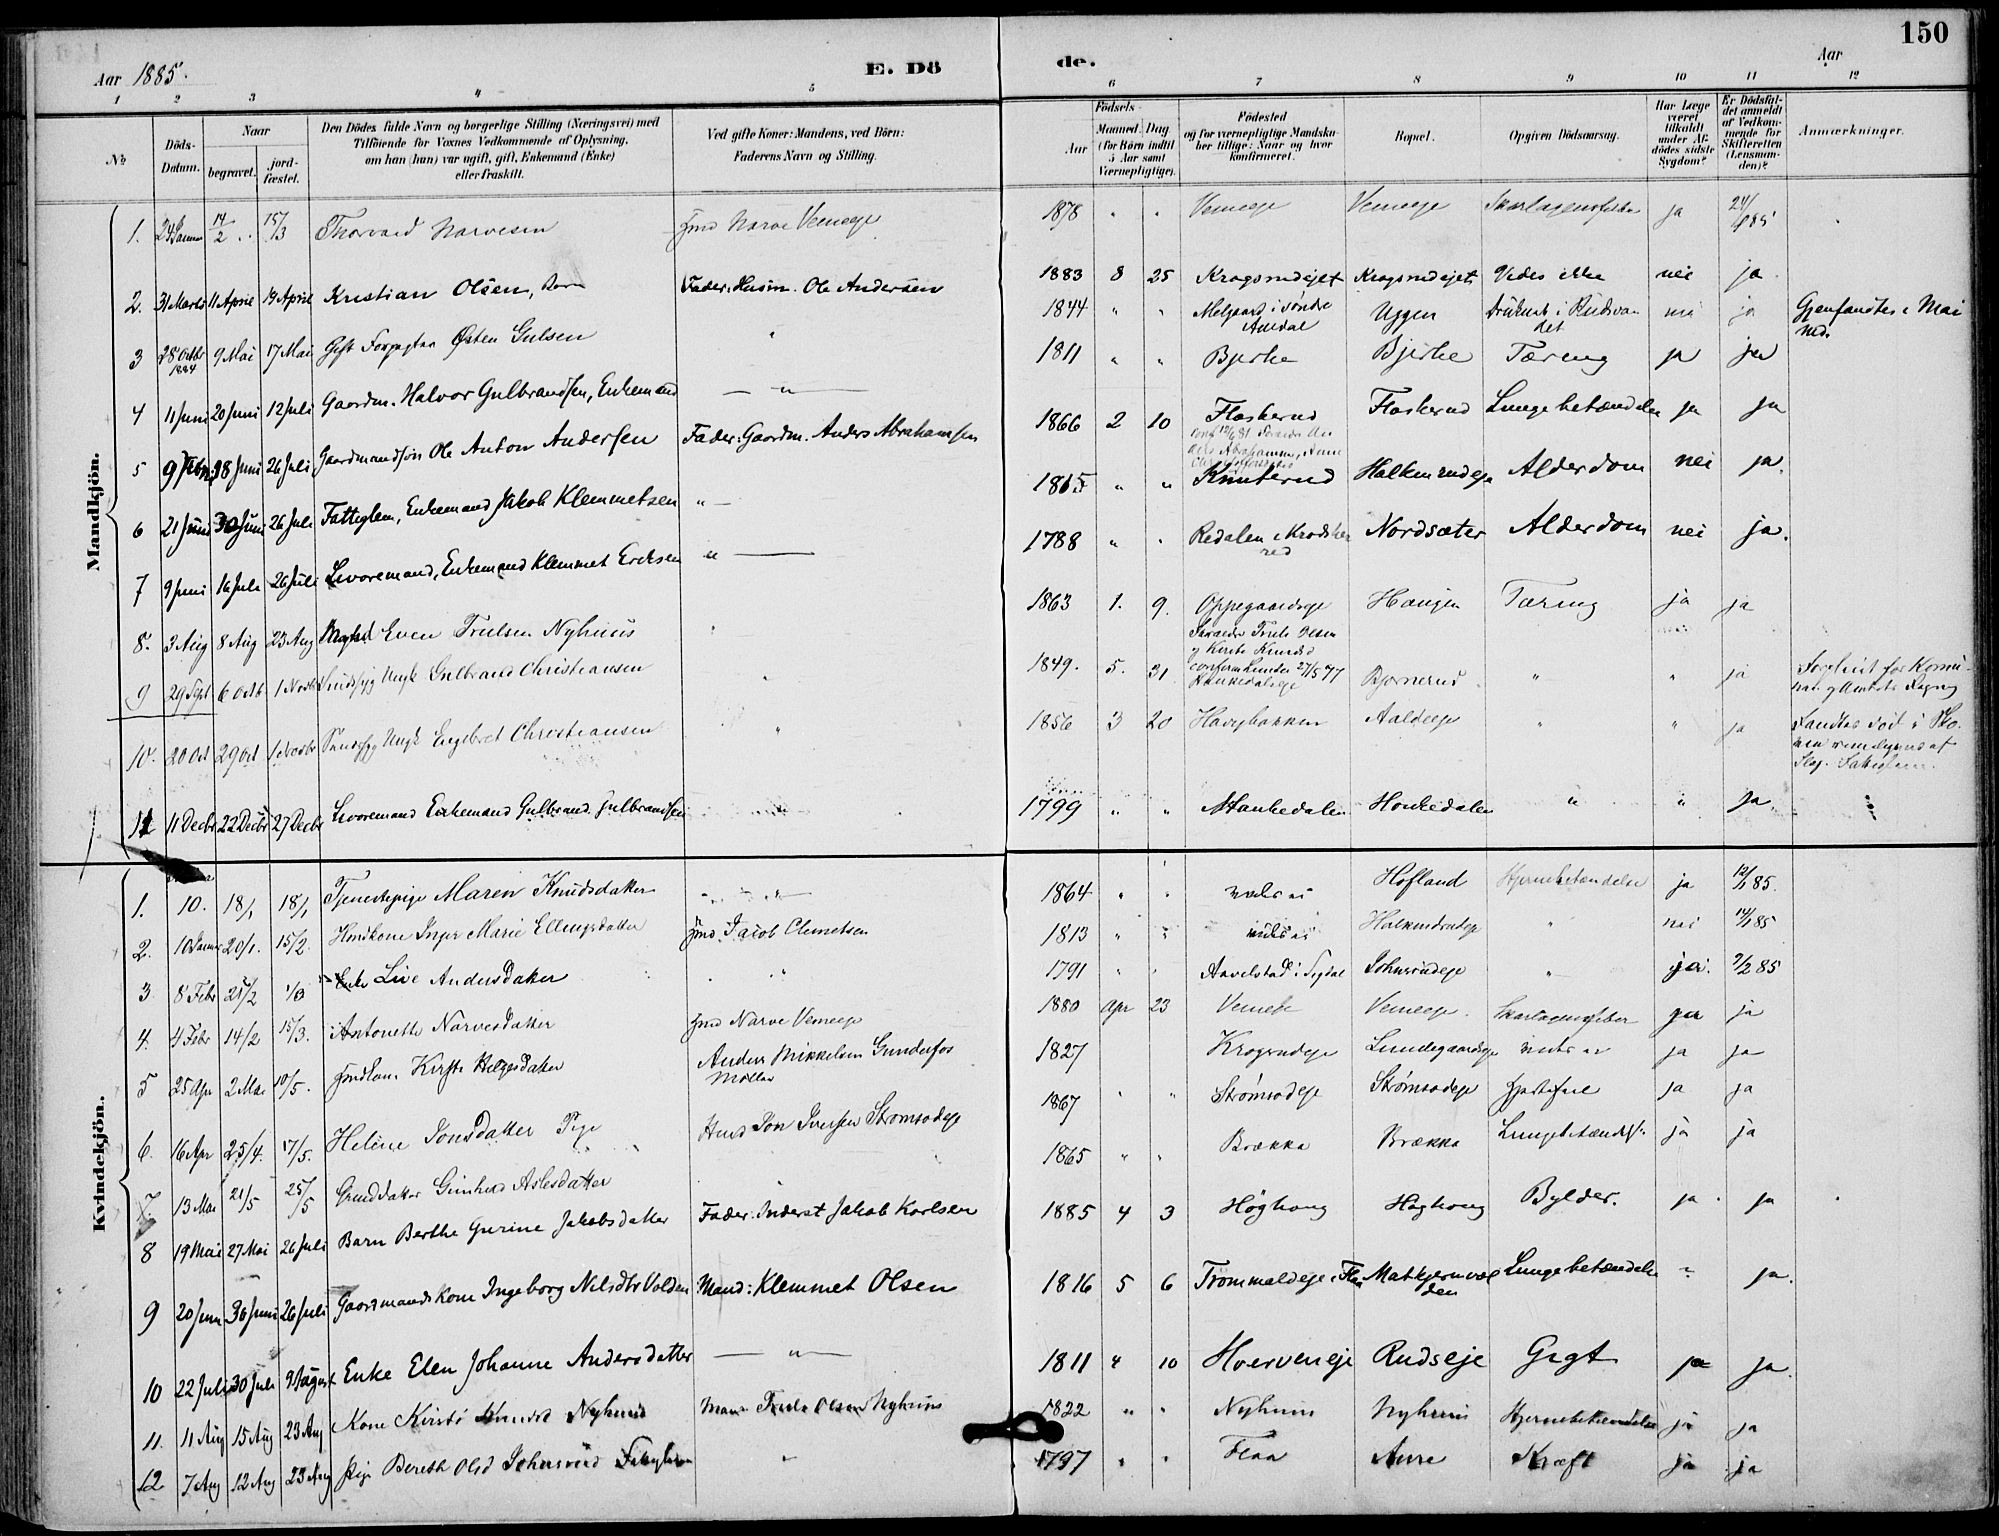 150
Aar 1885.
E. Dö
de.
Aar
1 2 3 4 5 6 7 8 9 10 11 12
№
Döds-Datum.
Naar
begravet.
jord-fæstet.
Den Dödes fulde Navn og borgerlige Stilling (Næringsvei) med
Tilföiende for Voxnes Vedkommende af Oplysning,
om han (hun) var ugift, gift, Enkemand (Enke)
eller fraskilt.
Ved gifte Koner: Mandens, ved Börn:
Faderens Navn og Stilling.
Födsels-
Aar
Maaned. Dag
(for Börn indtil
5 Aar samt
Værnepligtige).
Födested
og for værnepligtige Mandska-
ber tillige: Naar og hvor
konfirmeret.
Bopæl.
Opgiven Dödsaarsag.
Har Læge
været
tilkaldt
under Af-
dödes sidste
Sygdom?
Er Dödsfal-
det anmeldt
af Vedkom-
mende for
Skifteretten
(Lensman-
den)?
Anmærkninger.
Mandkjön.
1. 24 Januar 14/2 15/3 Thorvald Narvesen Gmd Narve Vemeeje 1878 " " Vemeeje Vemeeje Skarlagensfeber ja 24/1 85
2. 31 Marts 11 April 19 April Kristian Olsen, Barn Fader: Husm. Ole Andersen 1883 8 25 Kragsrudejet Kragsrudejet Vides ikke nei ja
3 28 Octbr 1884 9 Mai 17 Mai Gift Forpagter Østen Gulsen " 1844 " " Melgaard i søndre Aurdal Uggen Druknet i Rudsvandet nei ja Gjenfandtes i Mai Md.
4 11 Juni 20 Juni 12 Juli Gaardm. Halvor Gulbrandsen, Enkemand — " — 1811 " " Bjerke Bjerke Tæring ja ja
5 9 18 Juni 26 Juli Gaardmandssøn Ole Anton Andersen Fader: Gaardm. Anders Abrahamsen 1866 2 10 Flaskerud Flaskerud Lungebetændelse ja ja
6 21 Juni 30 Juni 26 Juli Fattiglem, Enkemand Jakob Klemmetsen " — 1815 " " Knuterud Halkinrudeje Alderdom nei ja.
7 9 Juni 16 Juli 26 Juli Livøremand, Enkemand Klemmet Eriksen " — 1788 " " Redalen i Krødsherred Nordsæter Alderdom nei ja.
8. 3 Aug 8 Aug 23 Aug Even Trulsen Nyhuus " 1863 1. 9. Oppegaardseje Haugen Tæring ja ja
Forældre Truls Olsen
9 29 Sept 6 Octb 1 Novbr Sindssyg Ungk Gulbrand Christiansen " 1849. 5. 31 Bjørnerud " " ja
10. 20 Oct 29 Oct 1 Novbr Sindssyg Ungk Engebret Christiansen " 1856 3 20 Haugbakken " " ja Fandtes død i
11 11 Decbr 22 Decbr 27 Decbr Livøremand Enkemand Gulbrand Gulbrandsen 1799 " " Hankedalen Honkedalen " " ja.
Kvindekjön.
1. 10. 18/1 18/1 Tjenestepige Maren Knudsdatter " 1864 " " Hofland Hjernebetændelse ja 12/1 85.
2. 10 Januar 20/1. 15/2. Huuskone Inger Marie Ellingsdatter Gmd Jacob Clemetsen 1813 " " nei 14/1 85
3. 8 Febr 25/2 1/3 Enke Live Andersdatter " 1791 " " Aavelstad i Sigdal Johnsrudeje " ja. 9/2 85
4. 4 Febr 14/2 15/3. Antonette Narvesdatter Gmd Narve Vemeeje 1880 Apr 23 Vemeeje Vemeeje. Skarlagensfeber ja ja
5 25 Apr 2 Mai 10/5. Kirsti Helgesdatter Anders Mikkelsen Gunderfos Møller 1827 Kragrudeje Lundegaardseje ja ja
6. 16 Apr 25/4. 17/5. Helene Jonsdatter Pige Jon Iversen Strømsodeje 1867 " " Strømsodeje Strømsodeje Hjertefeil ja ja
7 13 Mai 21/5 25/5 Gunhild Aslesdatter 1865 " " Brækka Brækka Lungebetændelse ja ja
8 19 Mai 27 Mai 26 Juli Barn Berthe Gurine Jakobsdatter Fader: Inderst Jakob Karlsen 1885 4 3 Høghaug Høghaug Bylder. ja ja
9 20 Juni 30 Juni 26 Juli Gaardmandskone Ingeborg Nilsdtr Volden Mand: Klemmet Olsen 1816 5 6 Trommaldeje i Flaa Matkjernvolden Lungebetændelse " ja.
10 22 Juli 30 Juli 9 August Enke Elen Johanne Andersdatter — " — 1811 4 10 Hverveneje Rudseje Gigt ja ja.
11. 11 Aug 15 Aug 23 Aug Kone Kirsti Knudsd Nyhuus Mand Truls Olsen Nyhuus 1822 " " Nyhuus Nyhuus Hjernebetændelse ja ja
12 7 Aug 12 Aug 23 Aug Pige Bereth Olsd Johnsrud Fattiglem " 1797 " " Flaa Aure Kræft ja ja